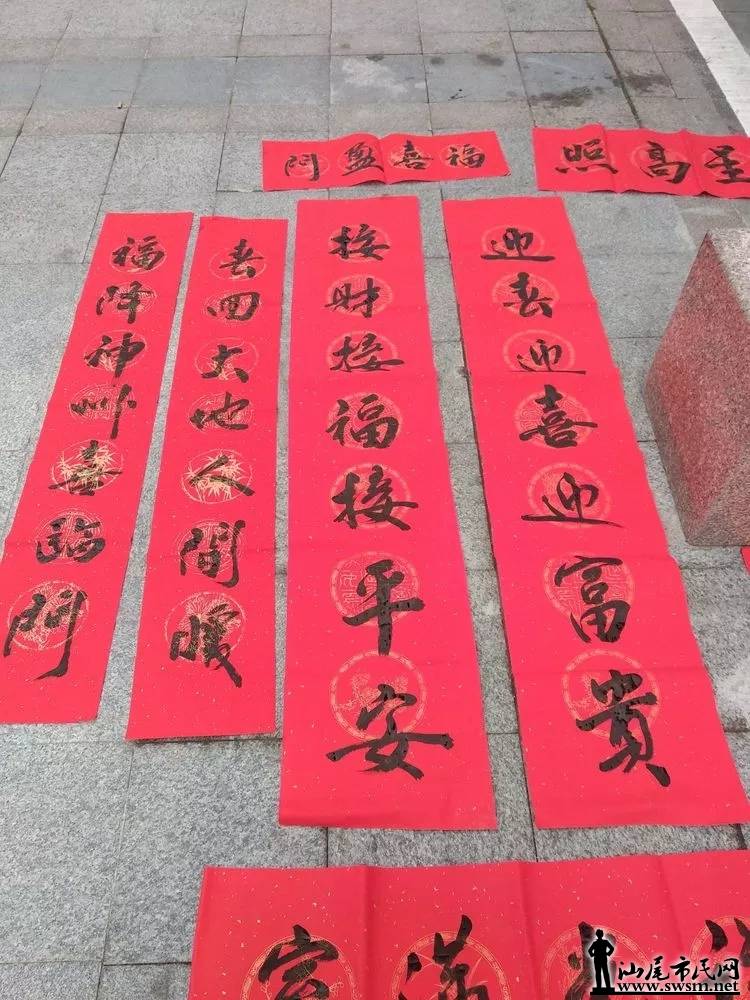 星高照
福喜盈門
迎春迎喜迎富貴
接財接福接平安
春回大地人間暖
福降神州喜臨門
满
汕尾市民网
www.swsm.net